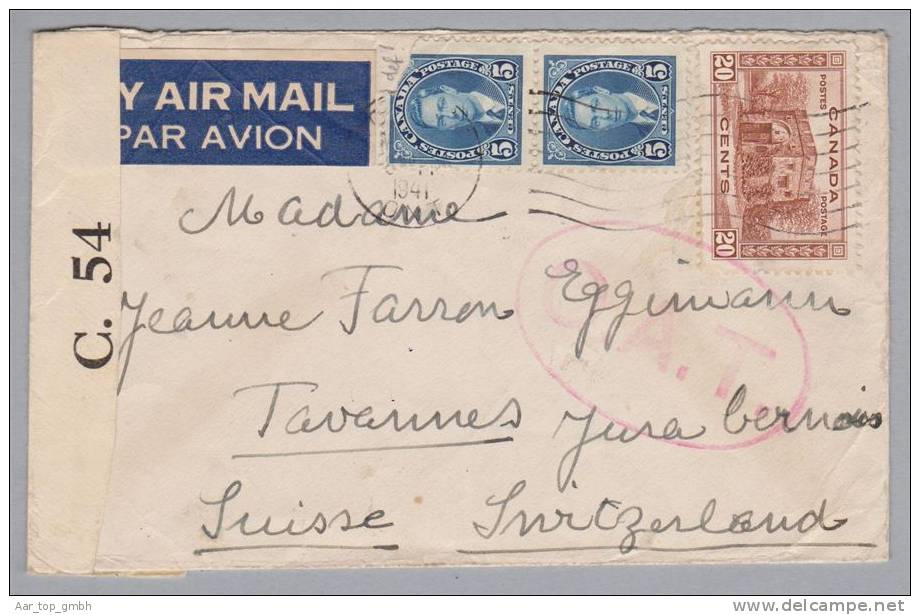 Y AIR MAIL
PAR AVION
C. 54
def!
CANADA POSTAGE
5 CENTS 5
POSTES
CANADA POSTAGE
5 CENTS 5
POSTES
20 CENTS 20
POSTES POSTAGE
CANADA
1941
ONT
O.A.T.
Madame
Jeanne Farron Eggimann
Tavannes Jura bernois
Suisse Switzerland
Aar_top_gmbh
delcampe.net